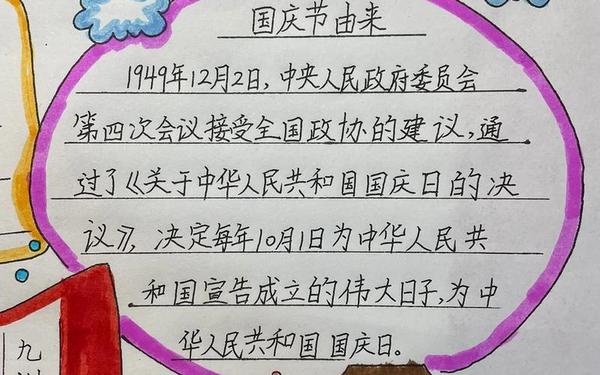 国庆节由来
1949年12月2日,中央人民政府委员会
第四次会议接受全国政协的建议,通
过了《关于中华人民共和国国庆日的决
议》,决定每年10月1日为中华人民共
和国宣告成立的伟大日子,为中
华人民共和国国庆日。
九